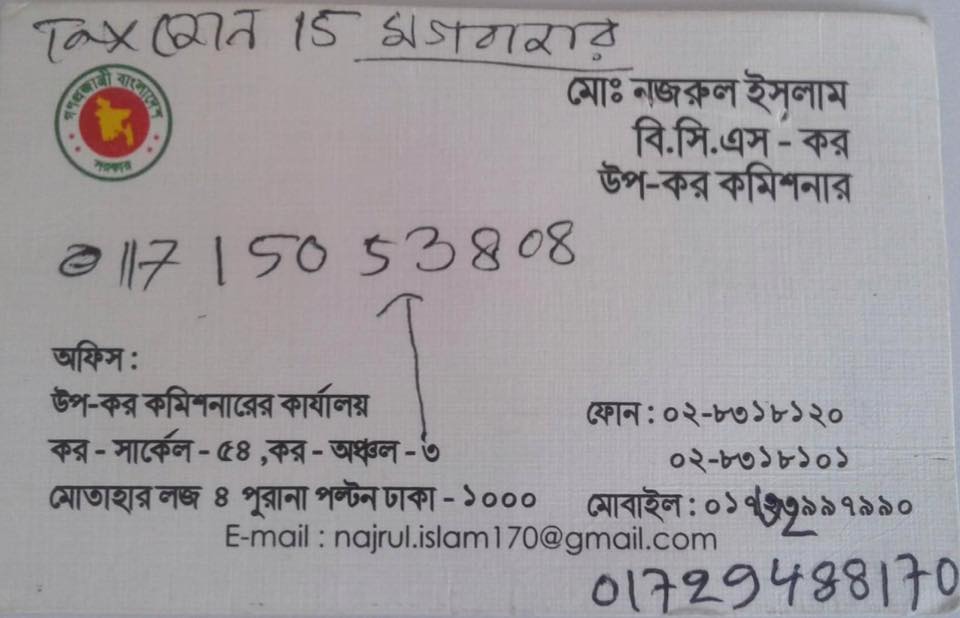 Tax জোন 15
গণপ্রজাতন্ত্রী বাংলাদেশ
সরকার
মোঃ নজরুল ইসলাম
বি.সি.এস - কর
উপ-কর কমিশনার
53808
অফিস :
উপ-কর কমিশনারের কার্যালয়
কর - সার্কেল - ৫৪ ,কর - অঞ্চল - ৩
মোতাহার লজ ৪ পুরানা পল্টন ঢাকা - ১০০০
ফোন : ০২-৮৩১৮১২০
০২-৮৩১৮১০১
মোবাইল :
E-mail : najrul.islam170@gmail.com
01729488170